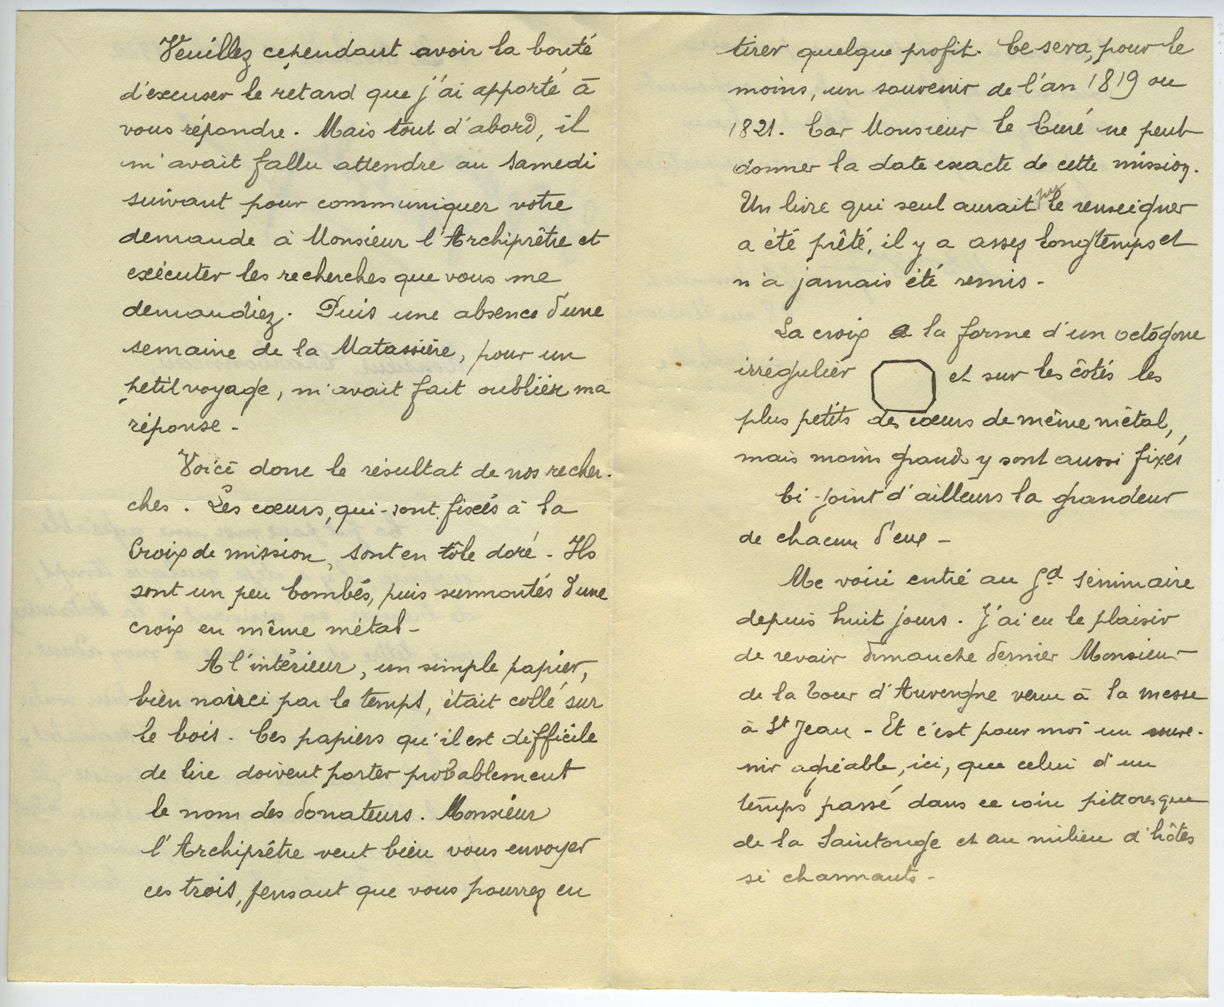 Veuillez cependant avoir la bonté
d'excuser le retard que j'ai apporté à
vous répondre. Mais tout d'abord, il
m'avait fallu attendre au Samedi
suivant pour communiquer votre
demande à Monsieur l'Archiprêtre et
exécuter les recherches que vous me
demandiez. Puis une absence d'une
semaine de la Matassière, pour un
petit voyage, m'avait fait oublier ma
réponse -
Voici donc le résultat de nos recher-
ches. Les cœurs, qui sont fixés à la
Croix de mission, sont en tôle doré - Ils
sont un peu bombés, puis surmontés d'une
croix en même métal -
A l'intérieur, un simple papier,
bien noirci par le temps, était collé sur
le bois. Ces papiers qu'il est difficile
de lire doivent porter probablement
le nom des donateurs. Monsieur
l'Archiprêtre veut bien vous envoyer
ces trois, pensant que vous pourrez en
tirer quelque profit. Ce sera, pour le
moins, un souvenir de l'an 1819 ou
1821. Car Monsieur le Curé ne peut
donner la date exacte de cette mission.
Un livre qui seul aurait pu le renseigner
a été prêté, il y a assez longtemps et
n'a jamais été remis -
La croix a la forme d'un octogone
irrégulier et sur les côtés les
plus petits des cœurs de même métal,
mais moins grands y sont aussi fixés
Ci-joint d'ailleurs la grandeur
de chacun d'eux -
Me voici entré au Gd Séminaire
depuis huit jours. J'ai eu le plaisir
de revoir dimanche dernier Monsieur
de la Tour d'Auvergne venu à la messe
à St Jean - Et c'est pour moi un souve-
nir agréable, ici, que celui d'un
temps passé dans ce coin pittoresque
de la Saintonge et au milieu d'hôtes
si charmants -